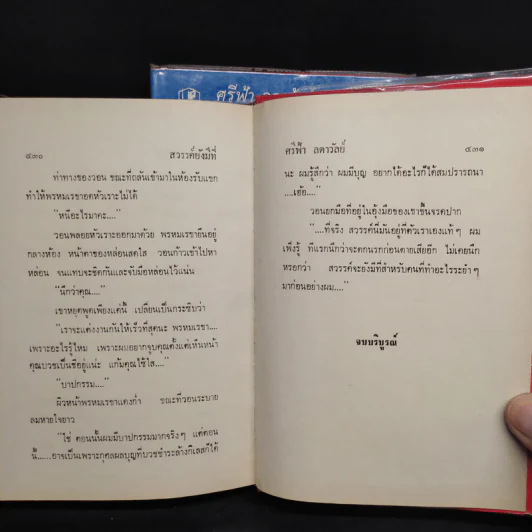 ศรีฟ้า
๔๓๐ สวรรค์ยังมีที่
ท่าทางของวอน ขณะที่ถลันเข้ามาในห้องรับแขก
ทำให้พรหมเรขาอดหัวเราะไม่ได้
"หนีอะไรมาคะ...."
วอนพลอยหัวเราะออกมาด้วย พรหมเรขายืนอยู่
กลางห้อง หน้าตาของหล่อนสดใส วอนก้าวเข้าไปหา
หล่อน จนแทบจะชิดกันและจับมือหล่อนไว้แน่น
"นึกว่าคุณ...."
เขาหยุดพูดเพียงแค่นี้ เปลี่ยนเป็นกระซิบว่า
"เราจะแต่งงานกันให้เร็วที่สุดนะ พรหมเรขา....
เพราะอะไรรู้ไหม เพราะผมอยากจูบคุณตั้งแต่เห็นหน้า
คุณบวชเป็นชีอยู่แน่ะ แก้มคุณใช้ใส...."
"บาปกรรม...."
ผิวหน้าพรหมเรขาแดงก่ำ ขณะที่วอนระบาย
ลมหายใจยาว
"ใช่ ตอนนั้นผมมีบาปกรรมมากจริงๆ แต่ตอน
นี้......อาจเป็นเพราะกุศลผลบุญที่บวชชำระล้างกิเลสก็ได้
ศรีฟ้า ลดาวัลย์ ๔๓๑
นะ ผมรู้สึกว่า ผมมีบุญ อยากได้อะไรก็ได้สมปรารถนา
....เอ้อ...."
วอนยกมือที่อยู่ในอุ้งมือของเขาขึ้นจรดปาก
"....ที่จริง สวรรค์นี่มันอยู่ที่ตัวเราเองแท้ๆ ผม
เพิ่งรู้ ทีแรกนึกว่าจะตกนรกก่อนตายเสียอีก ไม่เคยนึก
หรอกว่า สวรรค์จะยังมีที่สำหรับคนที่ทำอะไรระยำๆ
มาก่อนอย่างผม...."
จบบริบูรณ์